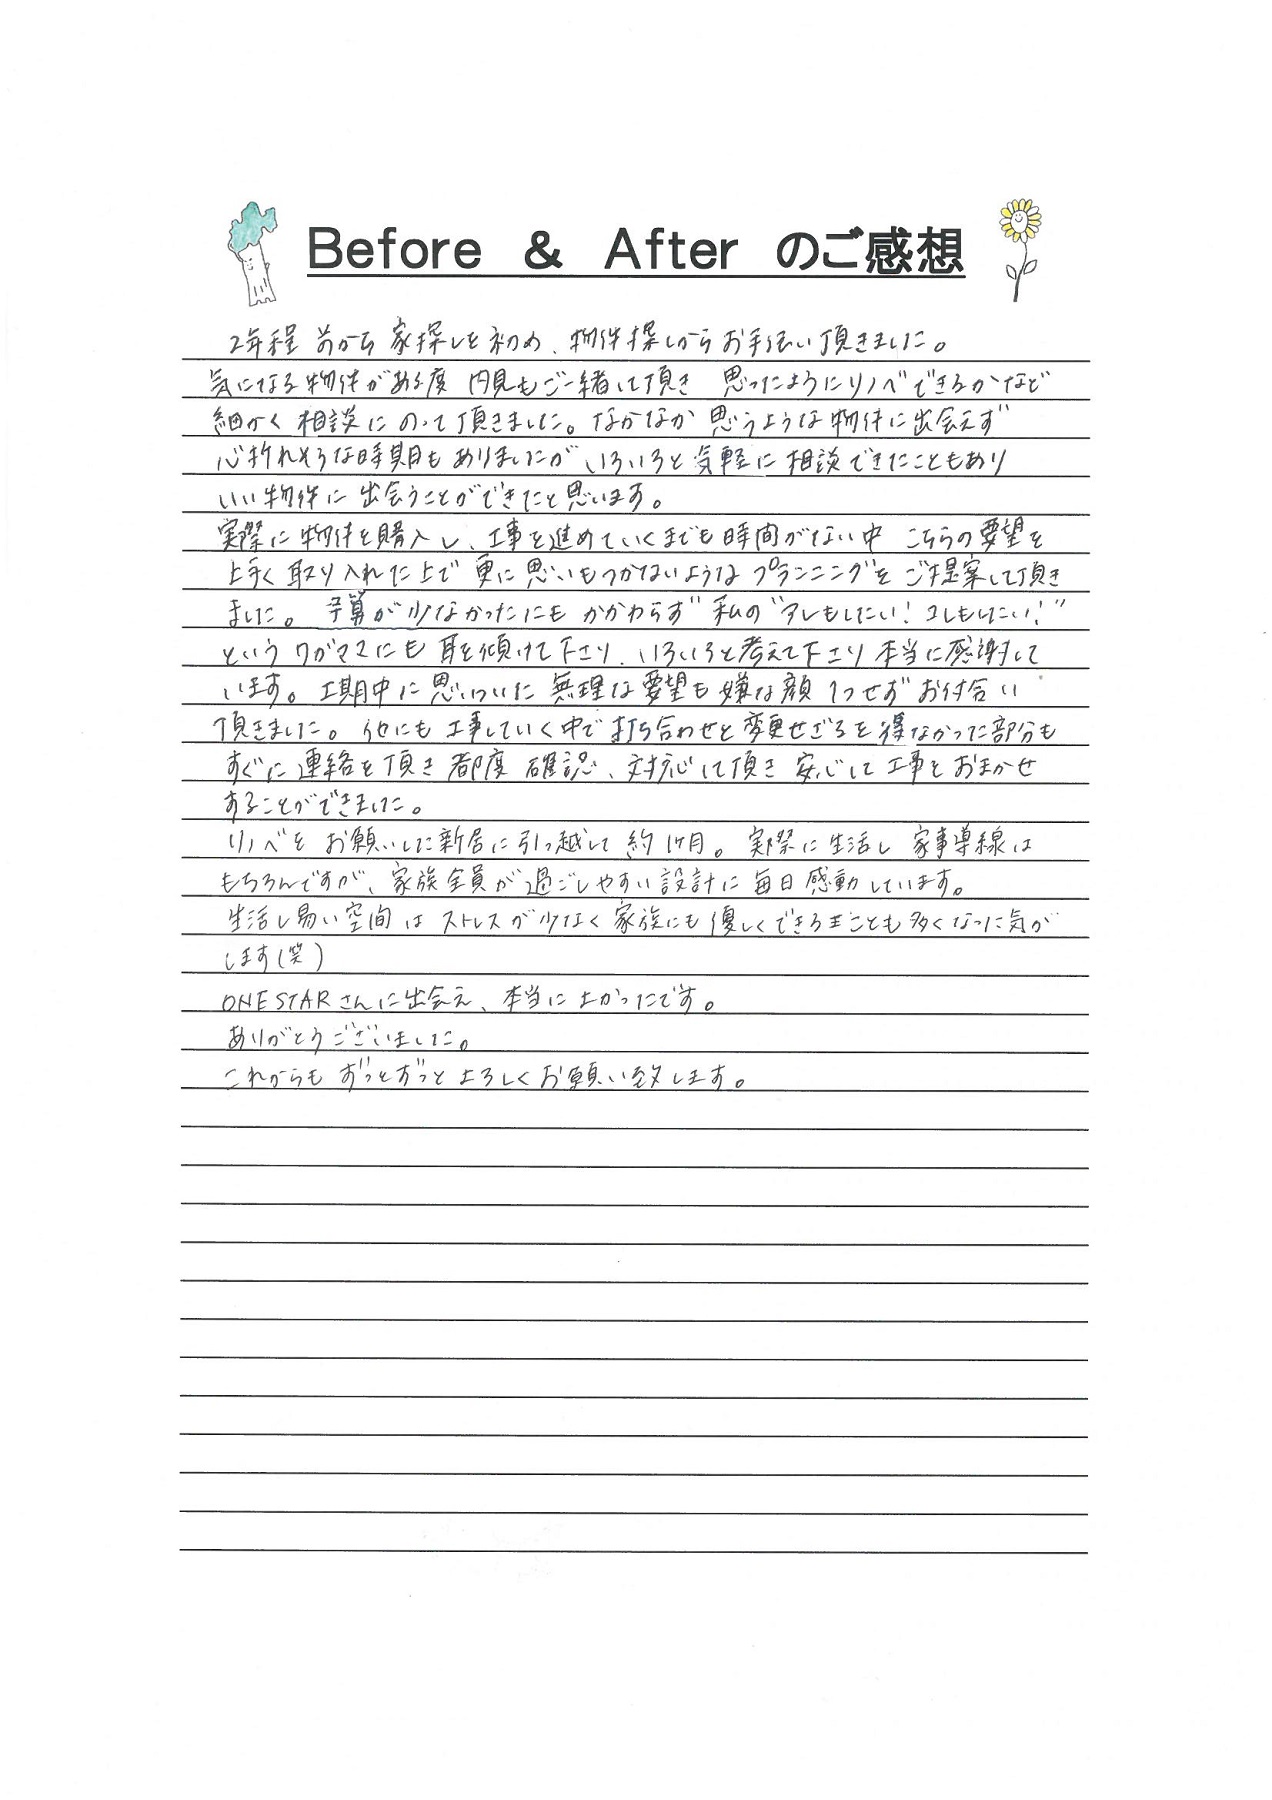 Before & After のご感想
2年程前から家探しを初め、物件探しからお手伝い頂きました。
気になる物件がある度 内見もご一緒して頂き 思ったようにリノベできるかなど
細かく相談にのって頂きました。なかなか思うような物件に出会えず
心折れそうな時期もありましたが いろいろと気軽に相談できたこともあり
いい物件に出会うことができたと思います。
実際に物件を購入し、工事を進めていくまでも時間がない中 こちらの要望を
上手く取り入れた上で 更に思いもつかないようなプランニングをご提案して頂き
ました。 予算が少なかったにもかかわらず 私の"アレもしたい!コレもしたい!"
というワガママにも耳を傾けて下さり、いろいろと考えて下さり本当に感謝して
います。工期中に思いついた無理な要望も嫌な顔1つせずお付合い
頂きました。他にも工事していく中で打ち合わせと変更せざるを得なかった部分も
すぐに連絡を頂き 都度 確認、対応して頂き 安心して工事をおまかせ
することができました。
リノベをお願いした新居に引っ越して約1ヶ月。実際に生活し 家事導線は
もちろんですが、家族全員が過ごしやすい設計に毎日感動しています。
生活し易い空間はストレスが少なく家族にも優しくできることも多くなった気が
します(笑)
ONE STARさんに出会え、本当によかったです。
ありがとうございました。
これからもずっとずっとよろしくお願い致します。